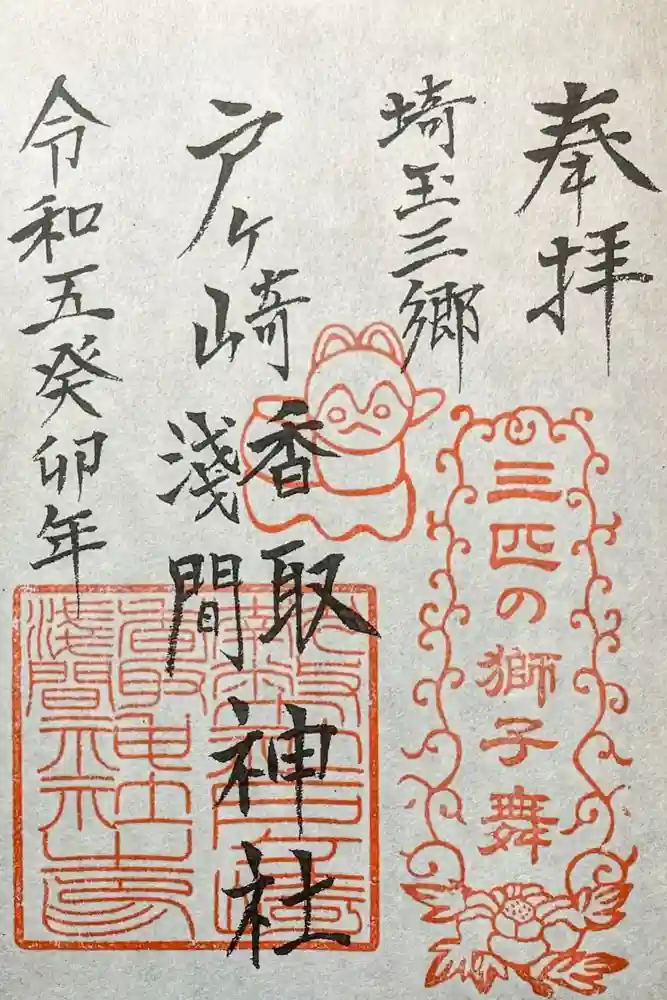 奉拝
三匹の獅子舞
埼玉三郷
戸ヶ崎
香取
浅間
神社
令和五癸卯年